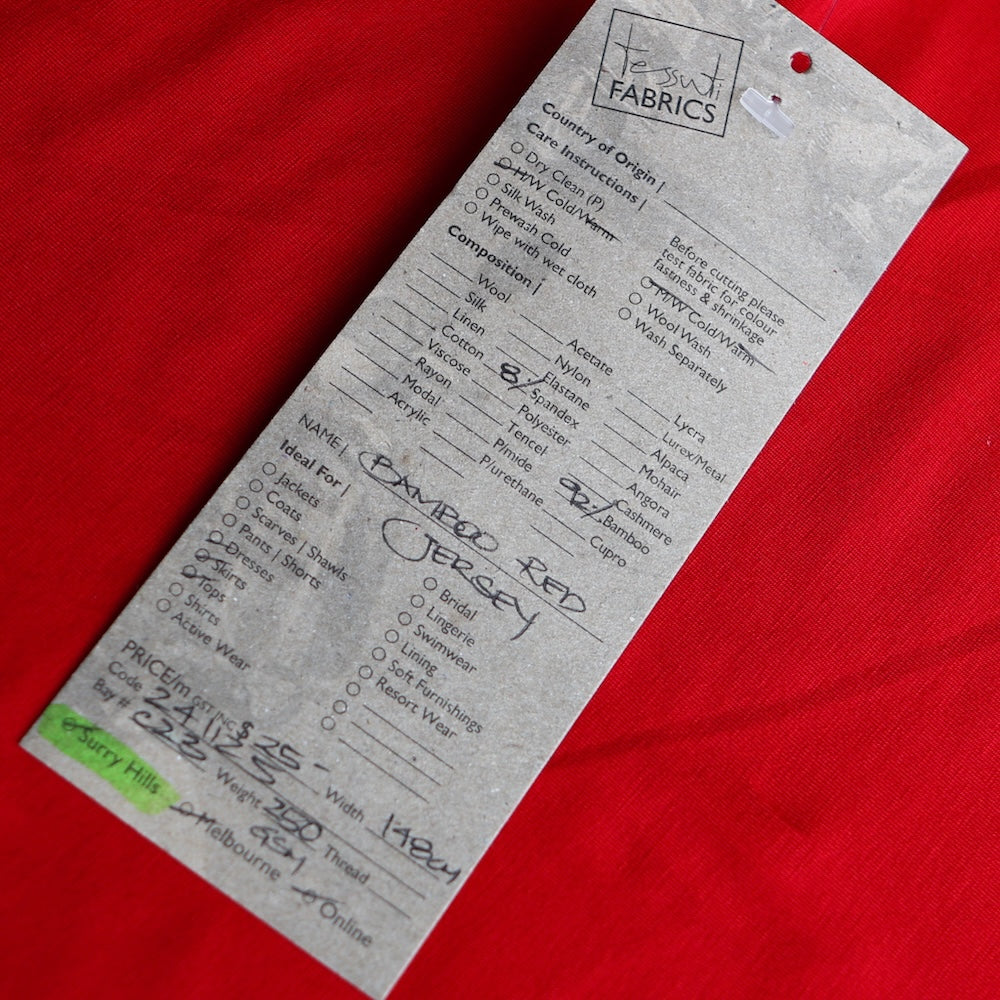 tessuti
FABRICS
Country of Origin |
Care Instructions |
Dry Clean (P)
H/W Cold/Warm
Silk Wash
Prewash Cold
Wipe with wet cloth
Before cutting please
test fabric for colour
fastness & shrinkage
M/W Cold/Warm
Wool Wash
Wash Separately
Composition |
Wool
Silk
Linen
Cotton
Viscose
Rayon
Modal
Acrylic
Acetate
Nylon
Elastane
8% Spandex
Polyester
Tencel
P/mide
P/urethane
Lycra
Lurex/Metal
Alpaca
Mohair
Angora
Cashmere
92% Bamboo
Cupro
NAME | BAMBOO RED
JERSEY
Ideal For |
Jackets
Coats
Scarves | Shawls
Pants | Shorts
Dresses
Skirts
Tops
Shirts
Active Wear
Bridal
Lingerie
Swimwear
Lining
Soft Furnishings
Resort Wear
PRICE/m GST INC $ 25-
Code Width 148cm
Bay # Weight 250 GSM Thread
Surry Hills Melbourne Online